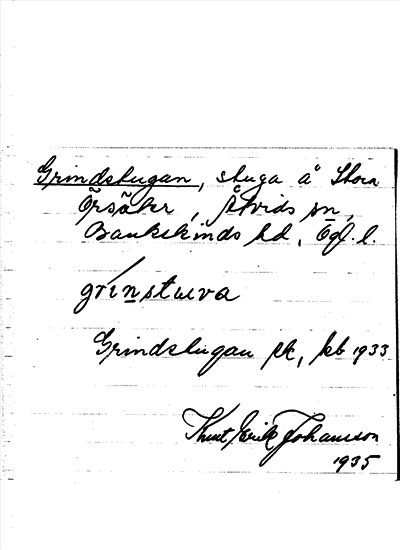 Grindstugan, stuga å Stora
Örsäker, Åtvids sn,
Bankekinds hd, Ögl. l.
grinstuva
Grindstugan pk, kb 1933
Knut Erik Johansson
1935